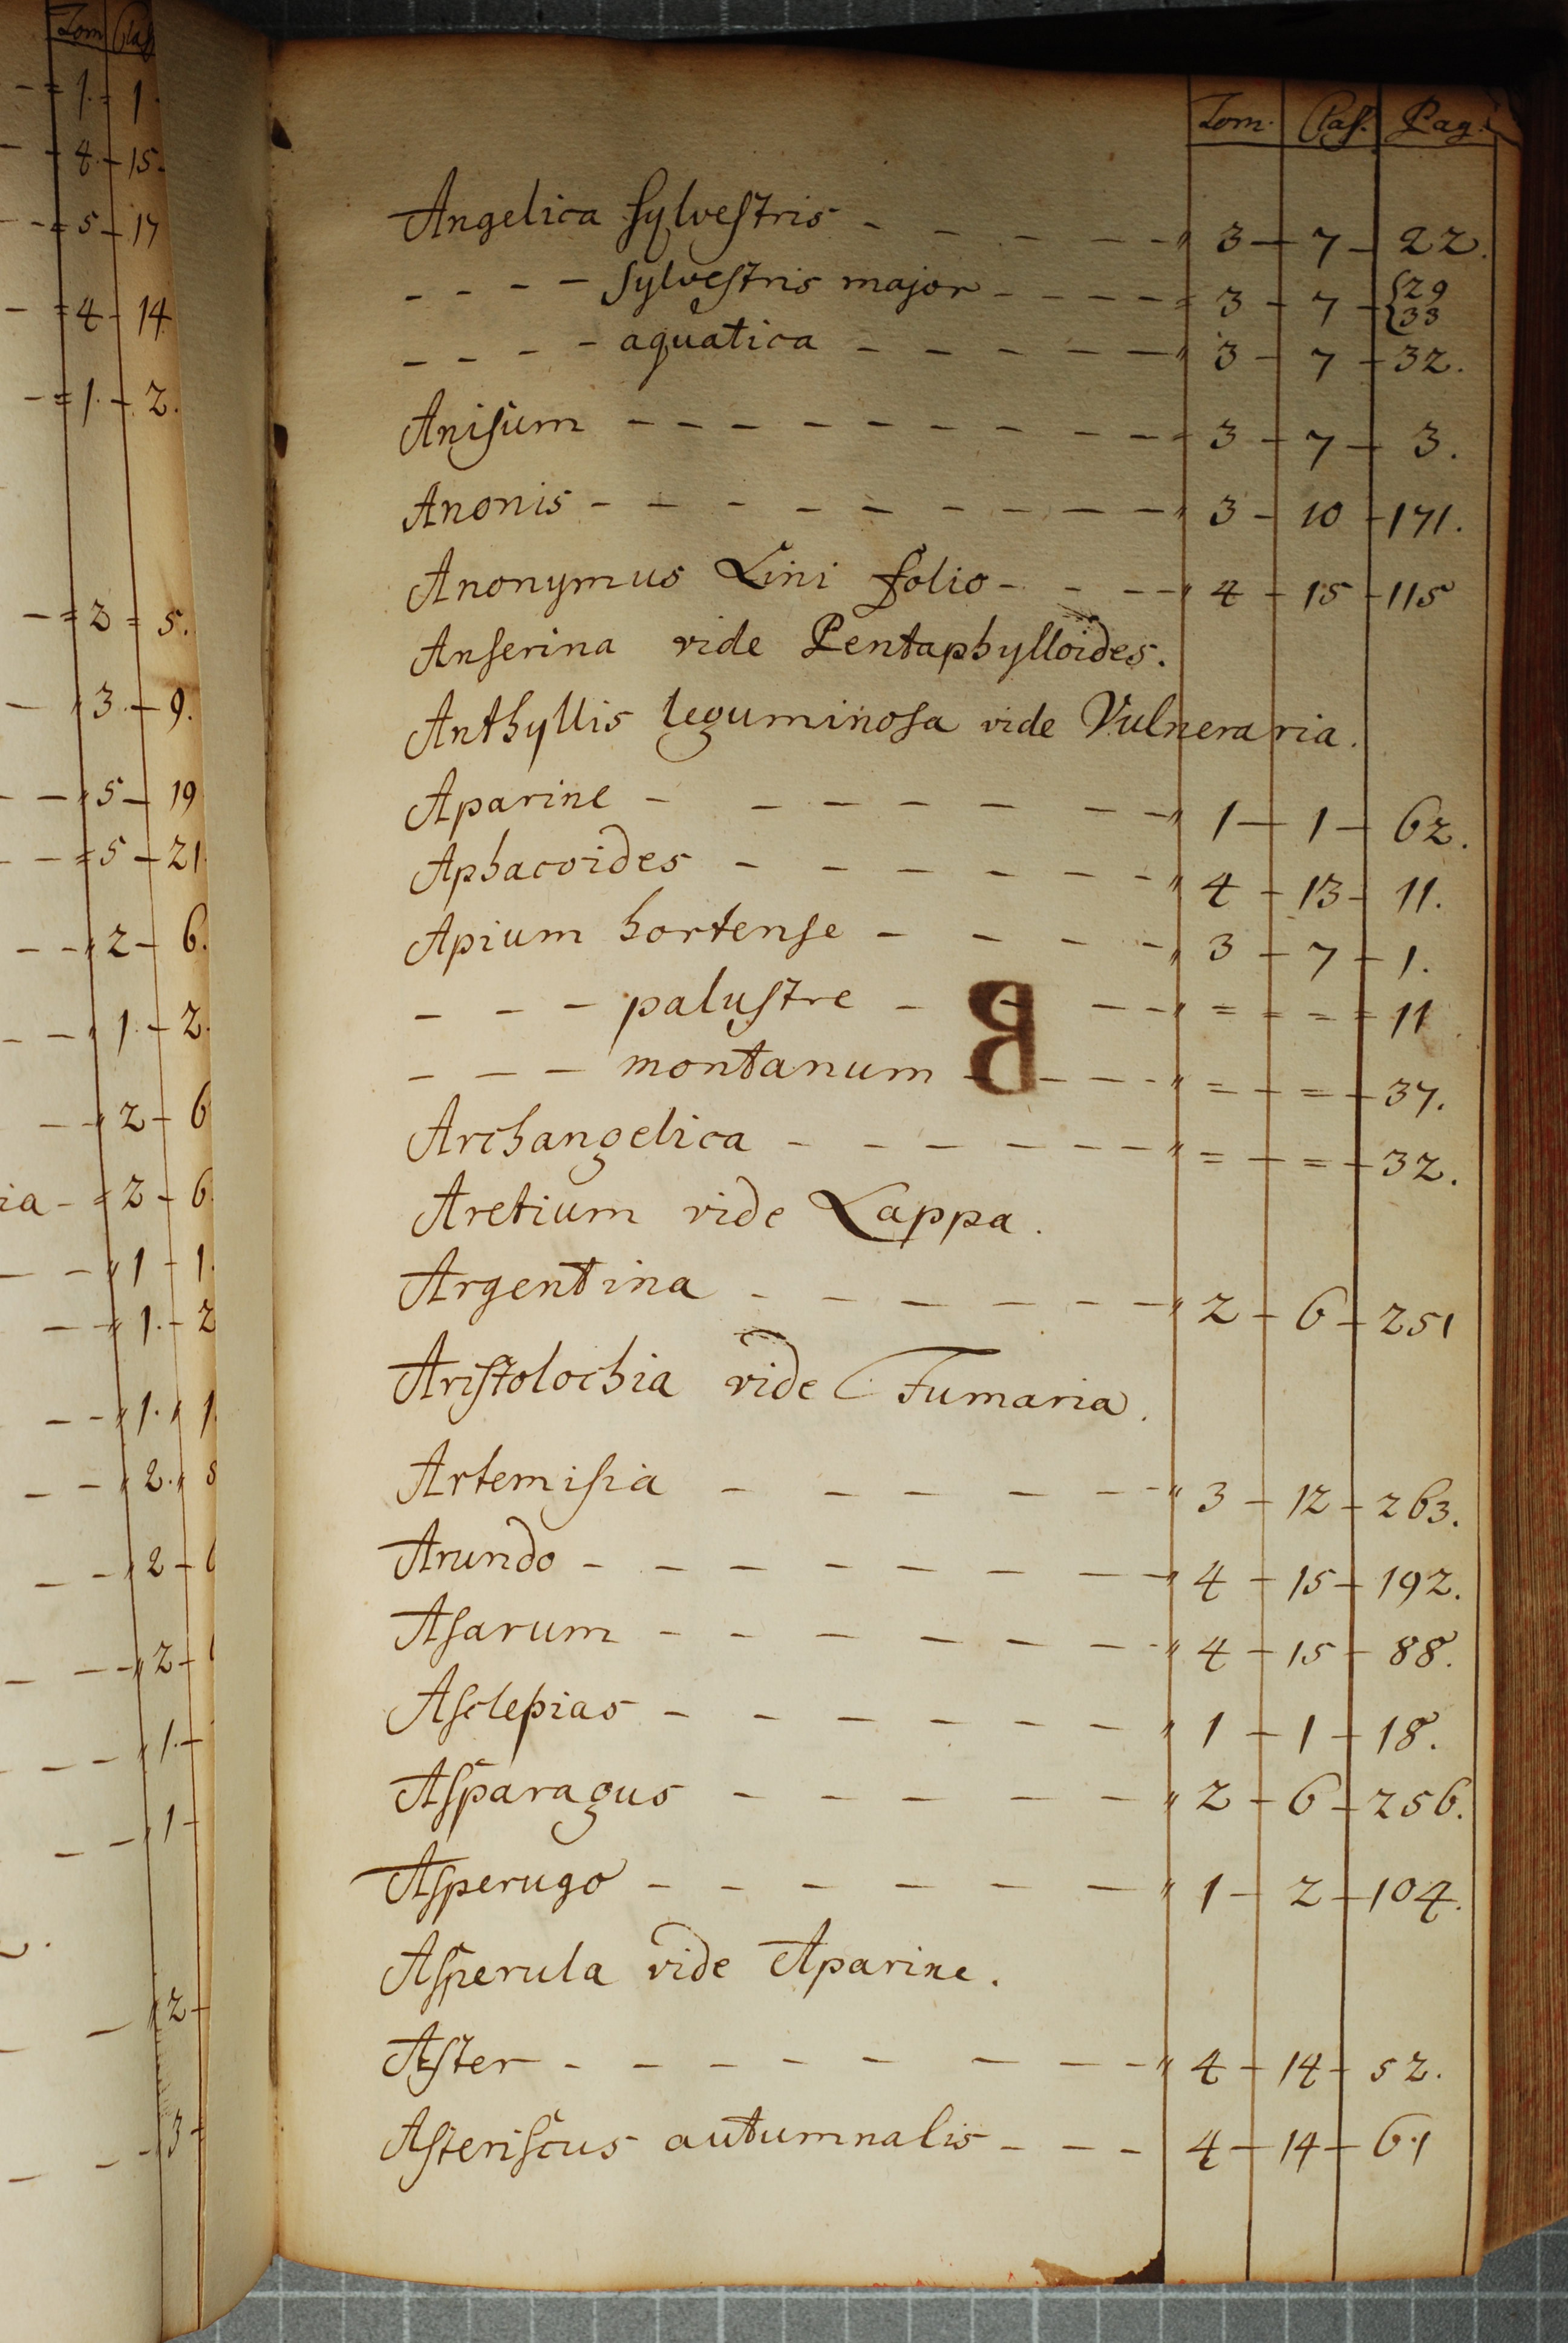 Tom Claſ
1. 1.
4. 15.
5 17
4 14
1. 2.
2 5.
3. 9.
5 19
5 21
2 6.
1. 2.
2 6
ia 2 6
1 1.
1. 2
1. 1.
2.
2
2
1.
1
2
3
Tom. Claſ. Pag.
Angelica ſylveſtris - - - - - 3 - 7 - 22.
- - - - ſylveſtris major - - - - 3 - 7 - {29
33
- - - - aquatica - - - - - 3 - 7 - 32.
Aniſum - - - - - - - - 3 - 7 - 3.
Anonis - - - - - - - - 3 - 10 - 171.
Anonymus Lini folio - - - - 4 - 15 - 115
Anſerina vide Pentaphylloides.
Anthyllis leguminoſa vide Vulneraria.
Aparine - - - - - - - 1 - 1 - 62.
Aphacoides - - - - - - 4 - 13 - 11.
Apium hortenſe - - - - 3 - 7 - 1.
- - - paluſtre - - - = - = - 11
- - - montanum - - - - = - = - 37.
Archangelica - - - - - - = - = - 32.
Aretium vide Lappa.
Argentina - - - - - - 2 - 6 - 251
Ariſtolochia vide Fumaria.
Artemiſia - - - - - - 3 - 12 - 263.
Arundo - - - - - - - 4 - 15 - 192.
Aſarum - - - - - - - 4 - 15 - 88.
Aſclepias - - - - - - 1 - 1 - 18.
Aſparagus - - - - - 2 - 6 - 256.
Aſperugo - - - - - - 1 - 2 - 104.
Aſperula vide Aparine.
Aſter - - - - - - - - 4 - 14 - 52.
Aſteriſcus autumnalis - - - 4 - 14 - 61